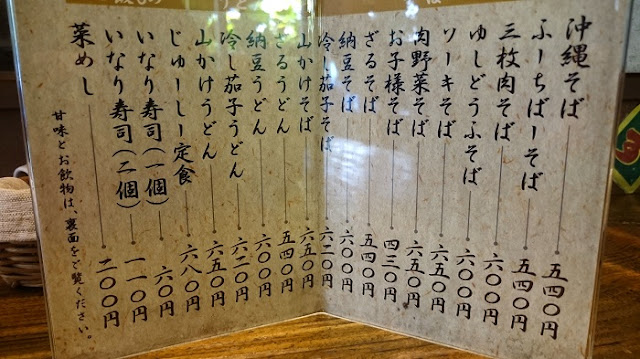 沖縄そば 五四〇円
ふーちばーそば 五四〇円
三枚肉そば 六〇〇円
ゆしどうふそば 六〇〇円
ソーキそば 六五〇円
肉野菜そば 六五〇円
お子様そば 四三〇円
ざるそば 五四〇円
納豆そば 六〇〇円
冷し茄子そば 六二〇円
山かけそば 六五〇円
ざるうどん 五四〇円
納豆うどん 六〇〇円
冷し茄子うどん 六二〇円
山かけうどん 六五〇円
じゅーしー定食 六八〇円
いなり寿司(一個) 六〇円
いなり寿司(二個) 一一〇円
菜めし 二〇〇円
甘味とお飲物は、裏面をご覧ください。